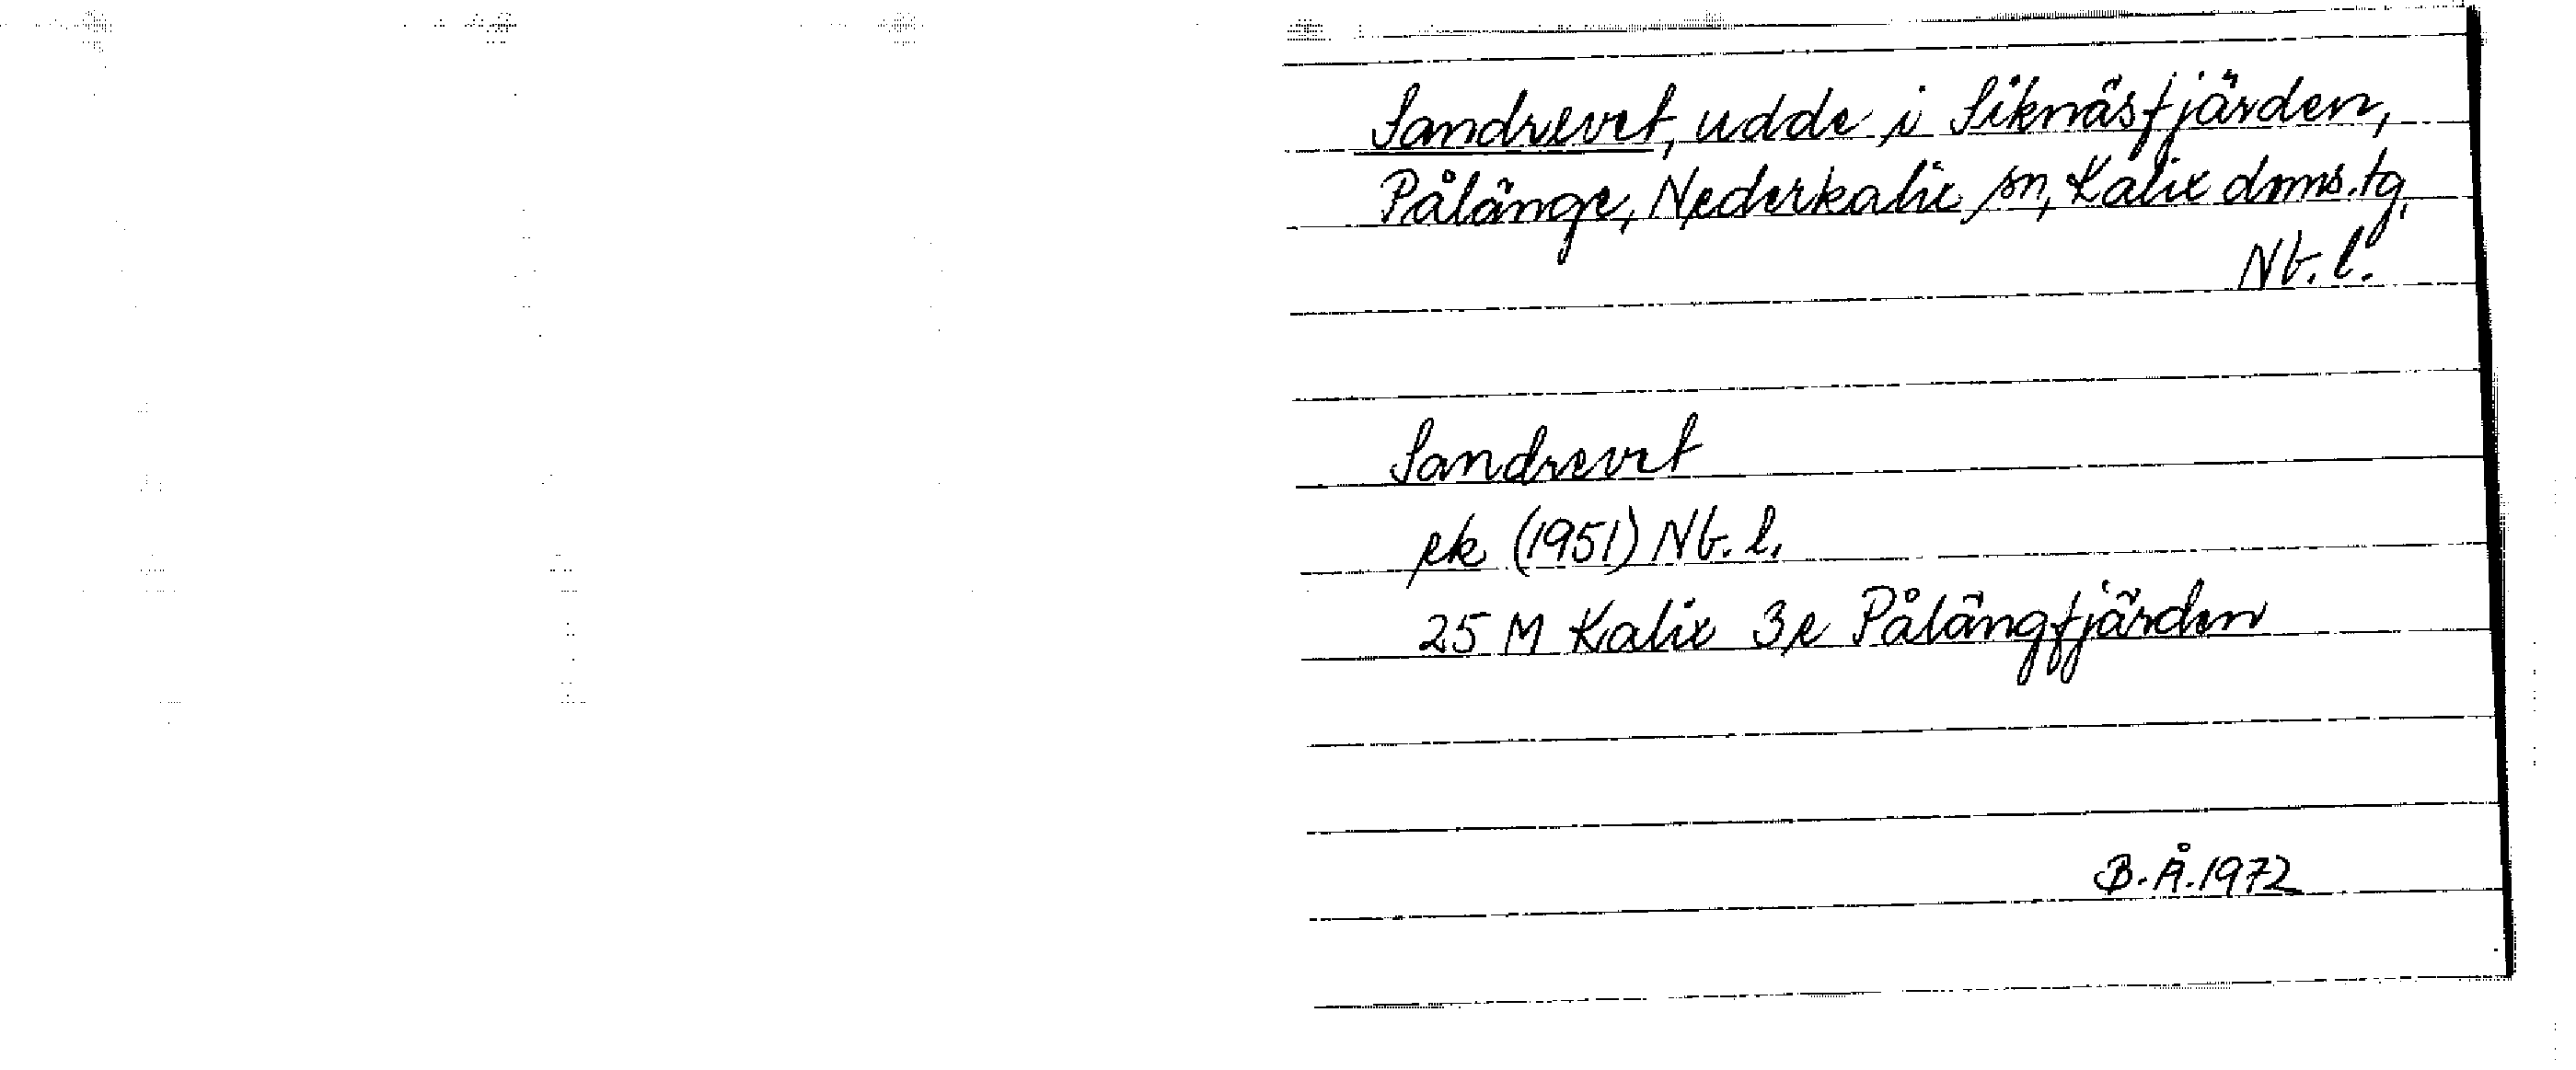 Sandrevet, udde i Siknäsfjärden,
Pålänge, Nederkalix sn, Kalix doms.tg,
Nb.l.
Sandrevet
ek (1951) Nb.l.
25 M Kalix 3e Pålängfjärden
B.Å.1972